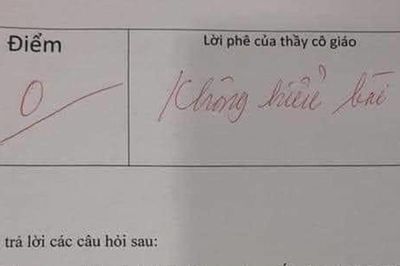 Điểm
Lời phê của thầy cô giáo
0
Không hiểu bài
trả lời các câu hỏi sau: